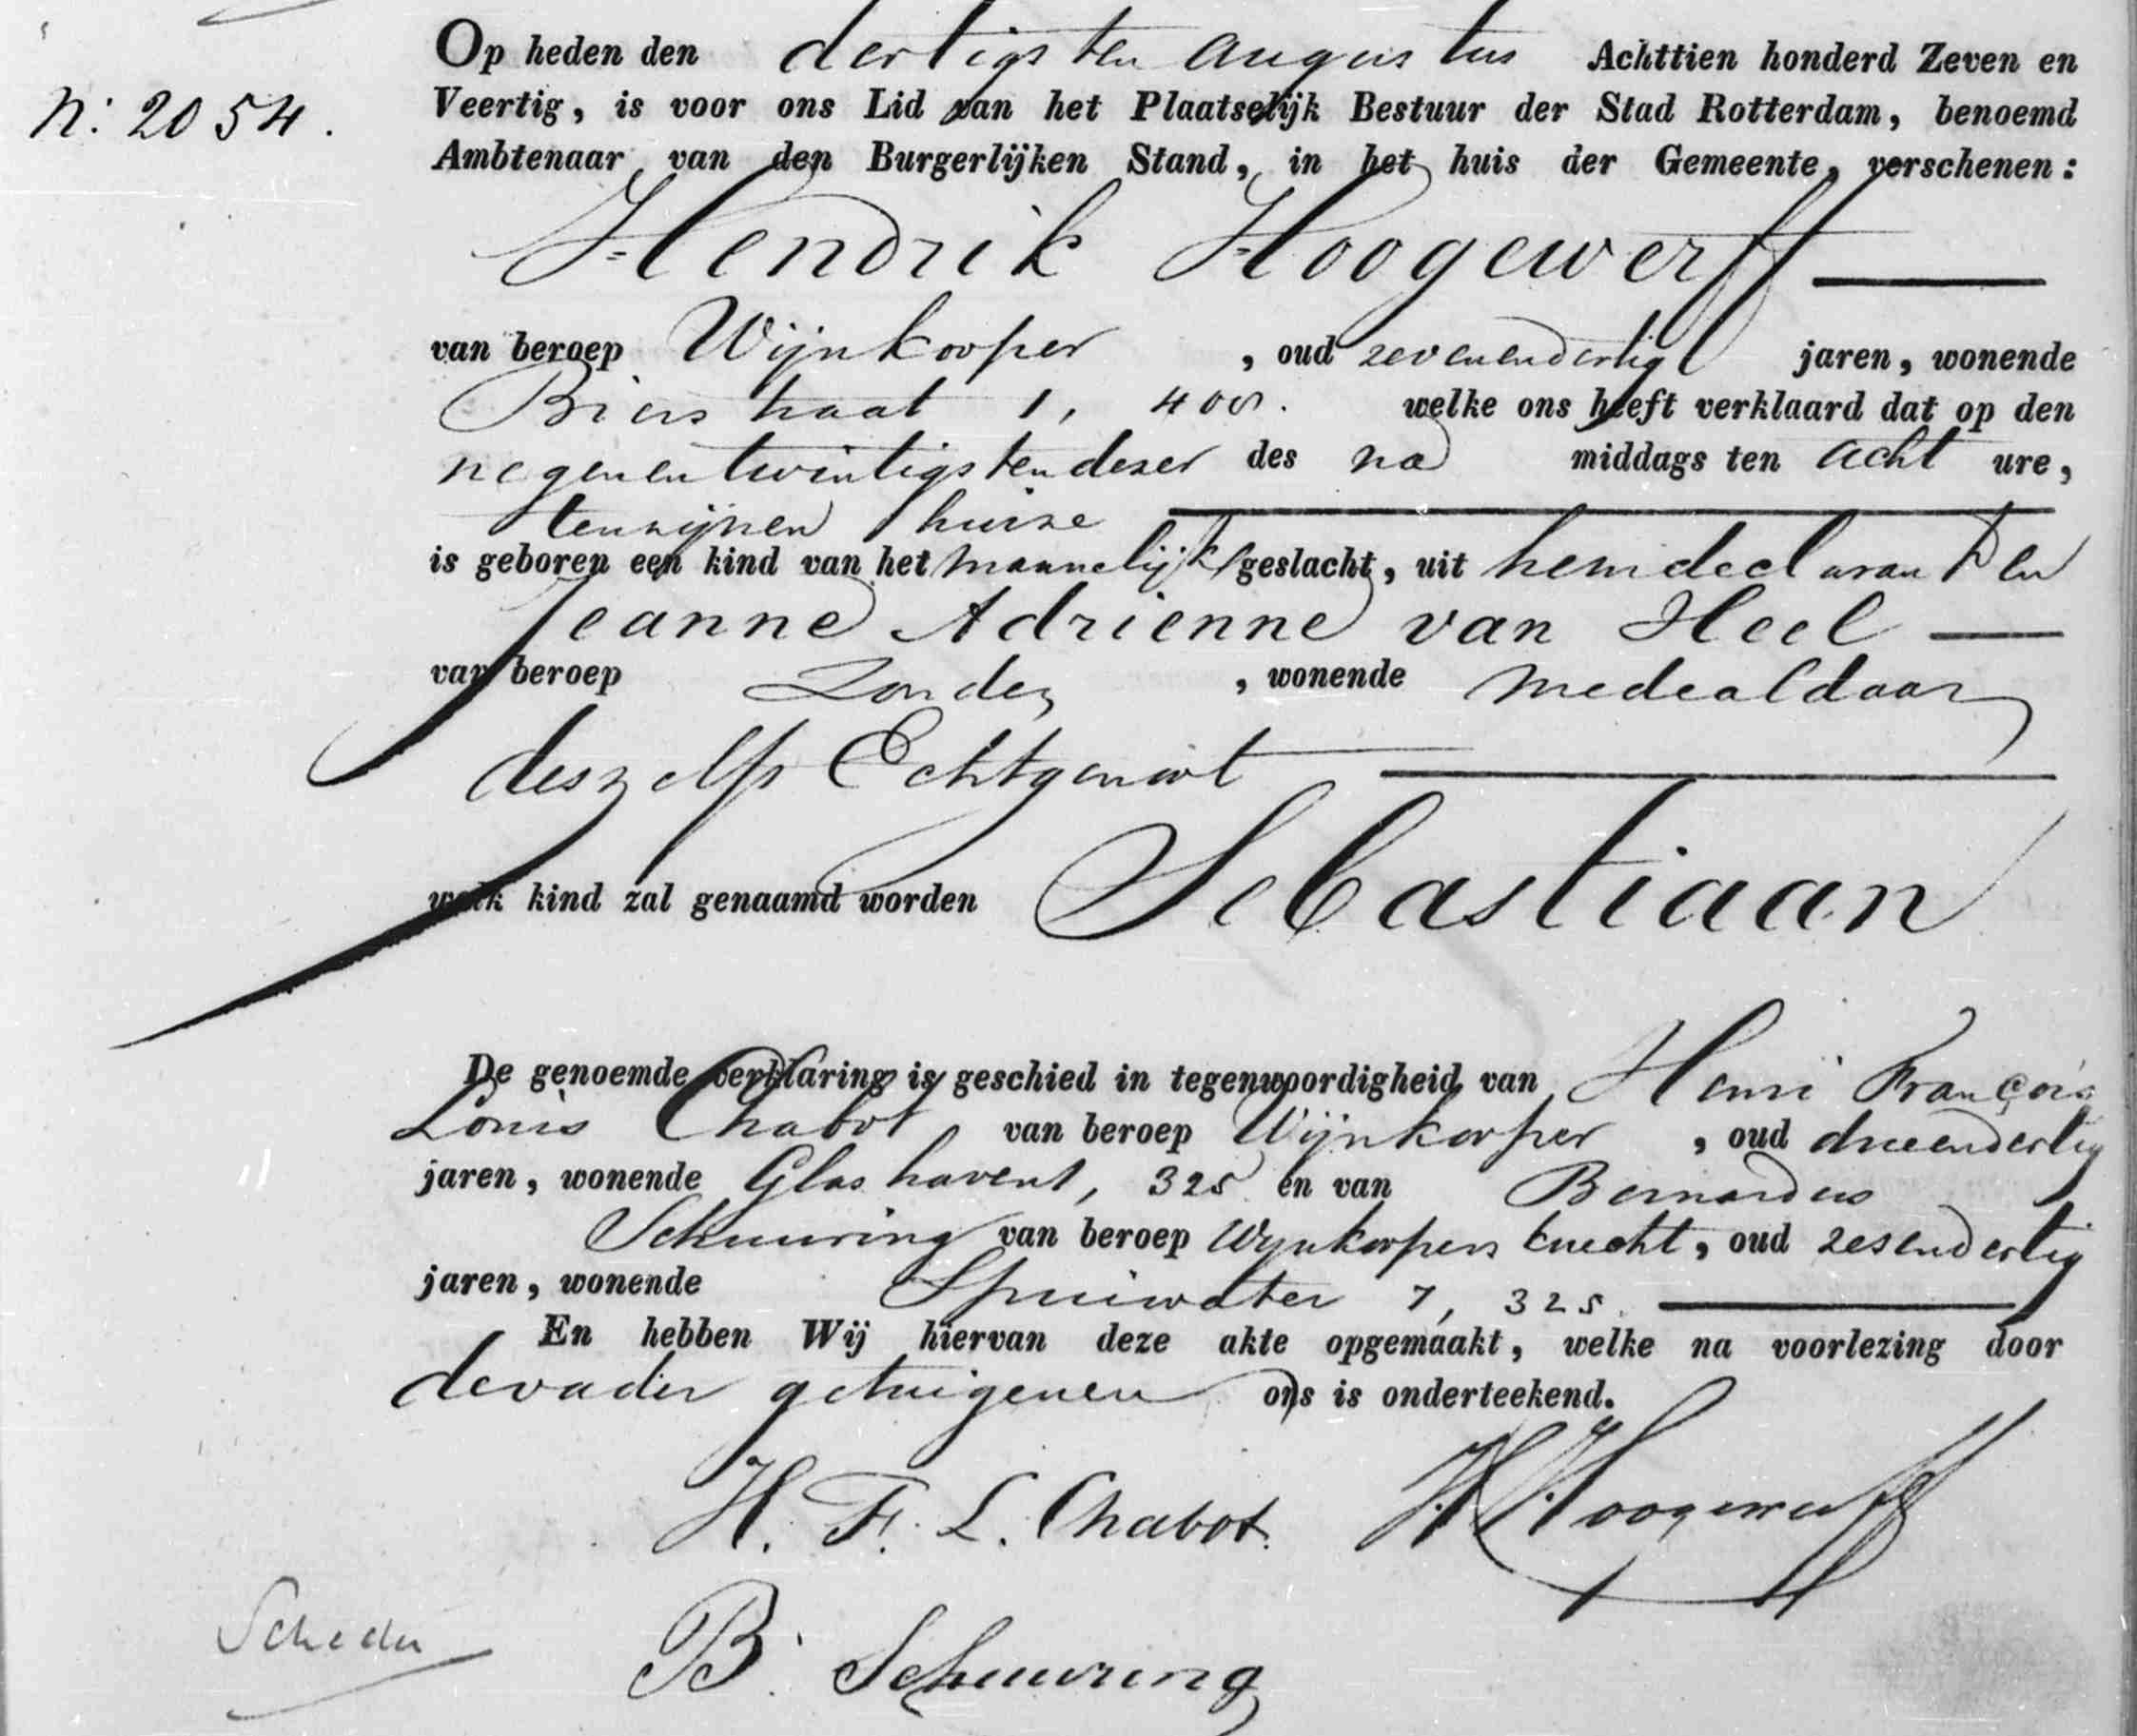 Op heden den dertigsten augustus Achttien honderd Zeven en
N: 2054. Veertig, is voor ons Lid van het Plaatselijk Bestuur der Stad Rotterdam, benoemd
Ambtenaar van den Burgerlijken Stand, in het huis der Gemeente, verschenen:
Hendrik Hoogewerff
van beroep Wijnkooper, oud zevenendertig jaren, wonende
1, welke ons heeft verklaard dat op den
negenentwintigsten dezer des na middags ten acht ure,
tenzijnen huize
is geboren een kind van het mannelijk geslacht, uit hem declarant en
Jeanne Adrienne van Heel
van beroep Zonder, wonende mede aldaar
deszelfs Echtgenoot
welk kind zal genaamd worden Sebastiaan
De genoemde verklaring is geschied in tegenwoordigheid van Henri François
Louis Chabot van beroep Wijnkooper, oud drieendertig
jaren, wonende Glashaven 1, 325 en van Bernardus
Schuuring van beroep Wynkoopers knecht, oud zesendertig
jaren, wonende Spuiwater 7, 325.
En hebben Wij hiervan deze akte opgemaakt, welke na voorlezing door
de vader getuigen en ons is onderteekend.
H. F. L. Chabot. H Hoogewerff
B. Schuuring